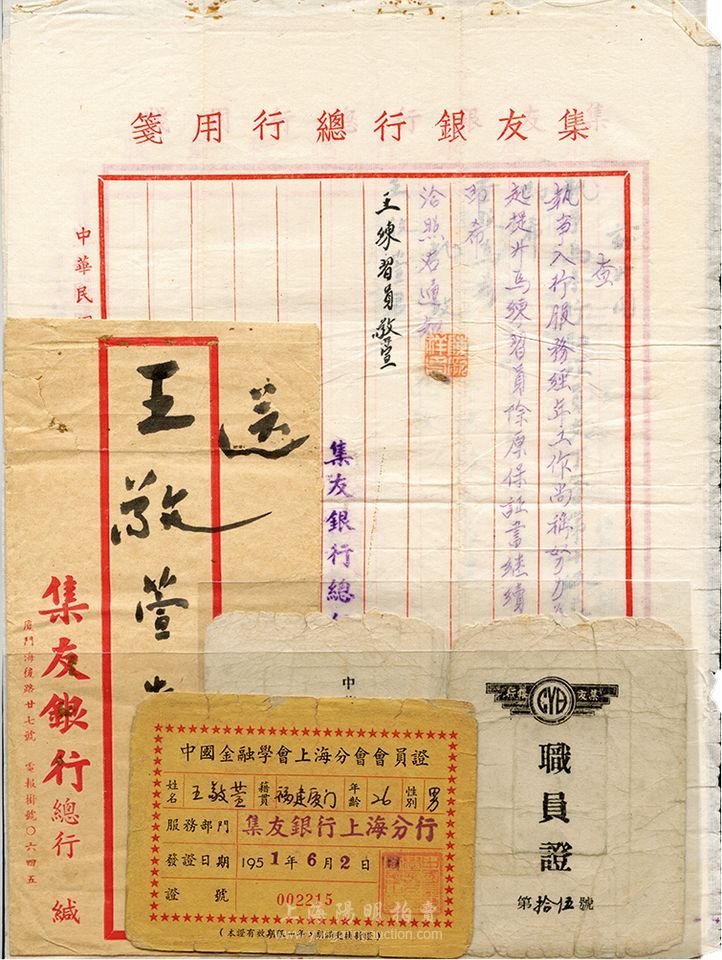 集友銀行總行用箋
查
執事入行服務經年工作尚稱努力
起提升為練習員除原保証書繼續
即希
洽照為通知
王練習員敬萱
集友銀行總
中華民國
送
王敬萱
集友銀行總行緘
廈門海後路廿七號 電報掛號〇六四五
中
中國金融學會上海分會會員證
姓名 王敬萱 籍貫 福建廈门 年齡 26 性別 男
服務部門 集友銀行上海分行
發證日期 1951年6月2日
證號 002215
上海陽明拍賣
集友 CYB 銀行
職員證
第拾伍號